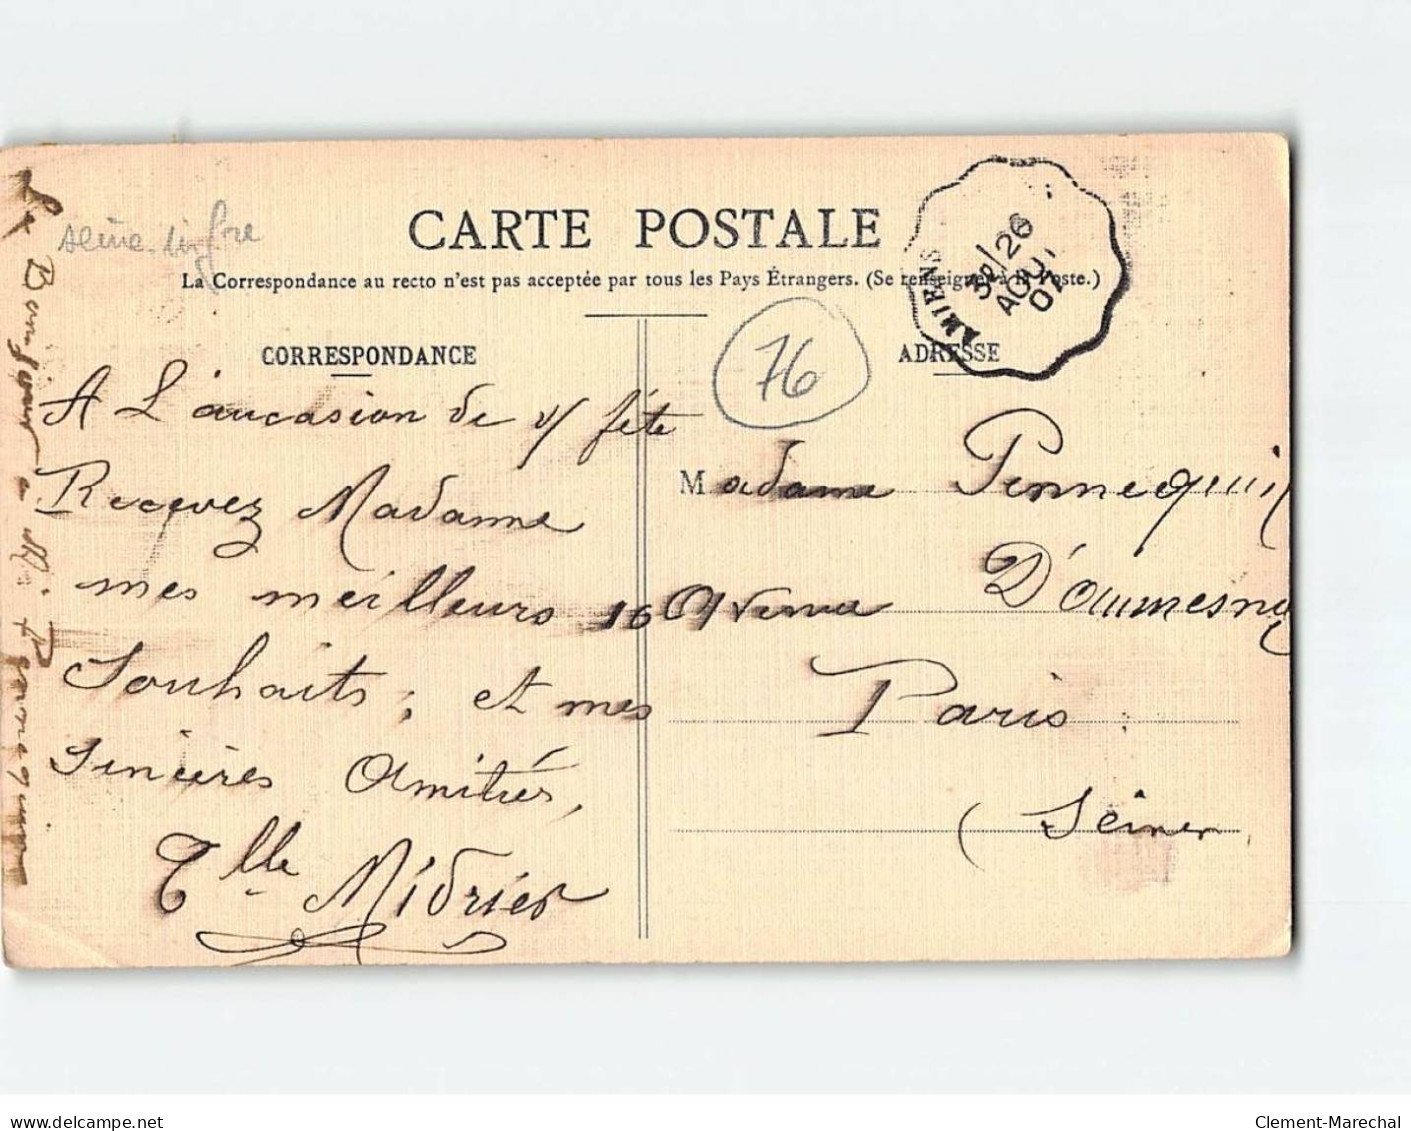 CARTE POSTALE
La Correspondance au recto n'est pas acceptée par tous les Pays Étrangers. (Se renseigner à la Poste.)
AMIENS
3e/26
AOUT
07
76
CORRESPONDANCE
A L'aucasion de v/ fête
Recevez Madame
mes meilleurs
Souhaits, et mes
Sincères Amitiés,
Midrier
ADRESSE
Madame Pennequin
16 Avenue D'Aumesny
Paris
(Seine)
Le Bonjour a Mr Pennequin
www.delcampe.net
Clement-Marechal